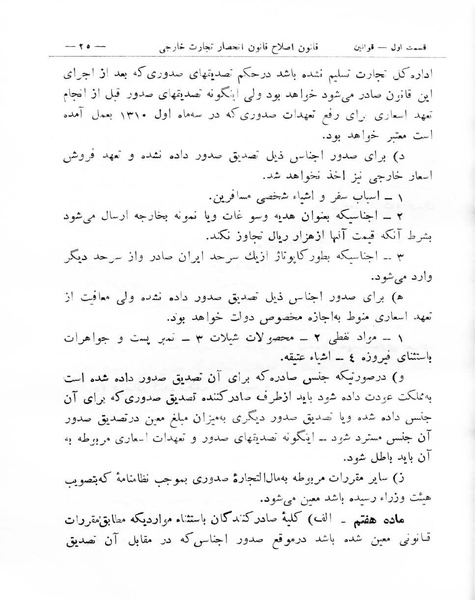 قسمت اول — قوانین    قانون اصلاح قانون انحصار تجارت خارجی    — ۲۵ —
اداره کل تجارت تسلیم نشده باشد درحکم تصدیقهای صدوری‌که بعد از اجرای
این قانون صادر می‌شود خواهد بود ولی اینگونه تصدیقهای صدور قبل از انجام
تعهد اسعاری برای رفع تعهدات صدوری‌که در سه‌ماه اول ۱۳۱۰ بعمل آمده
است معتبر خواهد بود.
د) برای صدور اجناس ذیل تصدیق صدور داده نشده و تعهد فروش
اسعار خارجی نیز اخذ نخواهد شد.
۱ — اسباب سفر و اشیاء شخصی مسافرین.
۲ — اجناسیکه بعنوان هدیه وسو غات ویا نمونه بخارجه ارسال می‌شود
بشرط آنکه قیمت آنها ازهزار ریال تجاوز نکند.
۳ — اجناسیکه بطورکاپوتاژ ازیك سرحد ایران صادر واز سرحد دیگر
وارد می‌شود.
ه) برای صدور اجناس ذیل تصدیق صدور داده نشده ولی معافیت از
تعهد اسعاری منوط به‌اجازه مخصوص دولت خواهد بود.
۱ — مراد نفطی ۲ — محصولات شیلات ۳ — تمبر پست و جواهرات
باستثنای فیروزه ٤ — اشیاء عتیقه.
و) درصورتیکه جنس صادره‌که برای آن تصدیق صدور داده شده است
به‌مملکت عودت داده شود باید ازطرف صادرکننده تصدیق صدوری‌که برای آن
جنس داده شده ویا تصدیق صدور دیگری به‌میزان مبلغ معین درتصدیق صدور
آن جنس مسترد شود — اینگونه تصدیقهای صدور و تعهدات اسعاری مربوطه به
آن باید باطل شود.
ز) سایر مقررات مربوطه به‌مال‌التجارهٔ صدوری بموجب نظامنامهٔ که‌بتصویب
هیئت وزراء رسیده باشد معین می‌شود.
ماده هفتم — الف) کلیهٔ صادرکنندگان باستثناء مواردیکه مطابق‌مقررات
قانونی معین شده باشد درموقع صدور اجناسی‌که در مقابل آن تصدیق